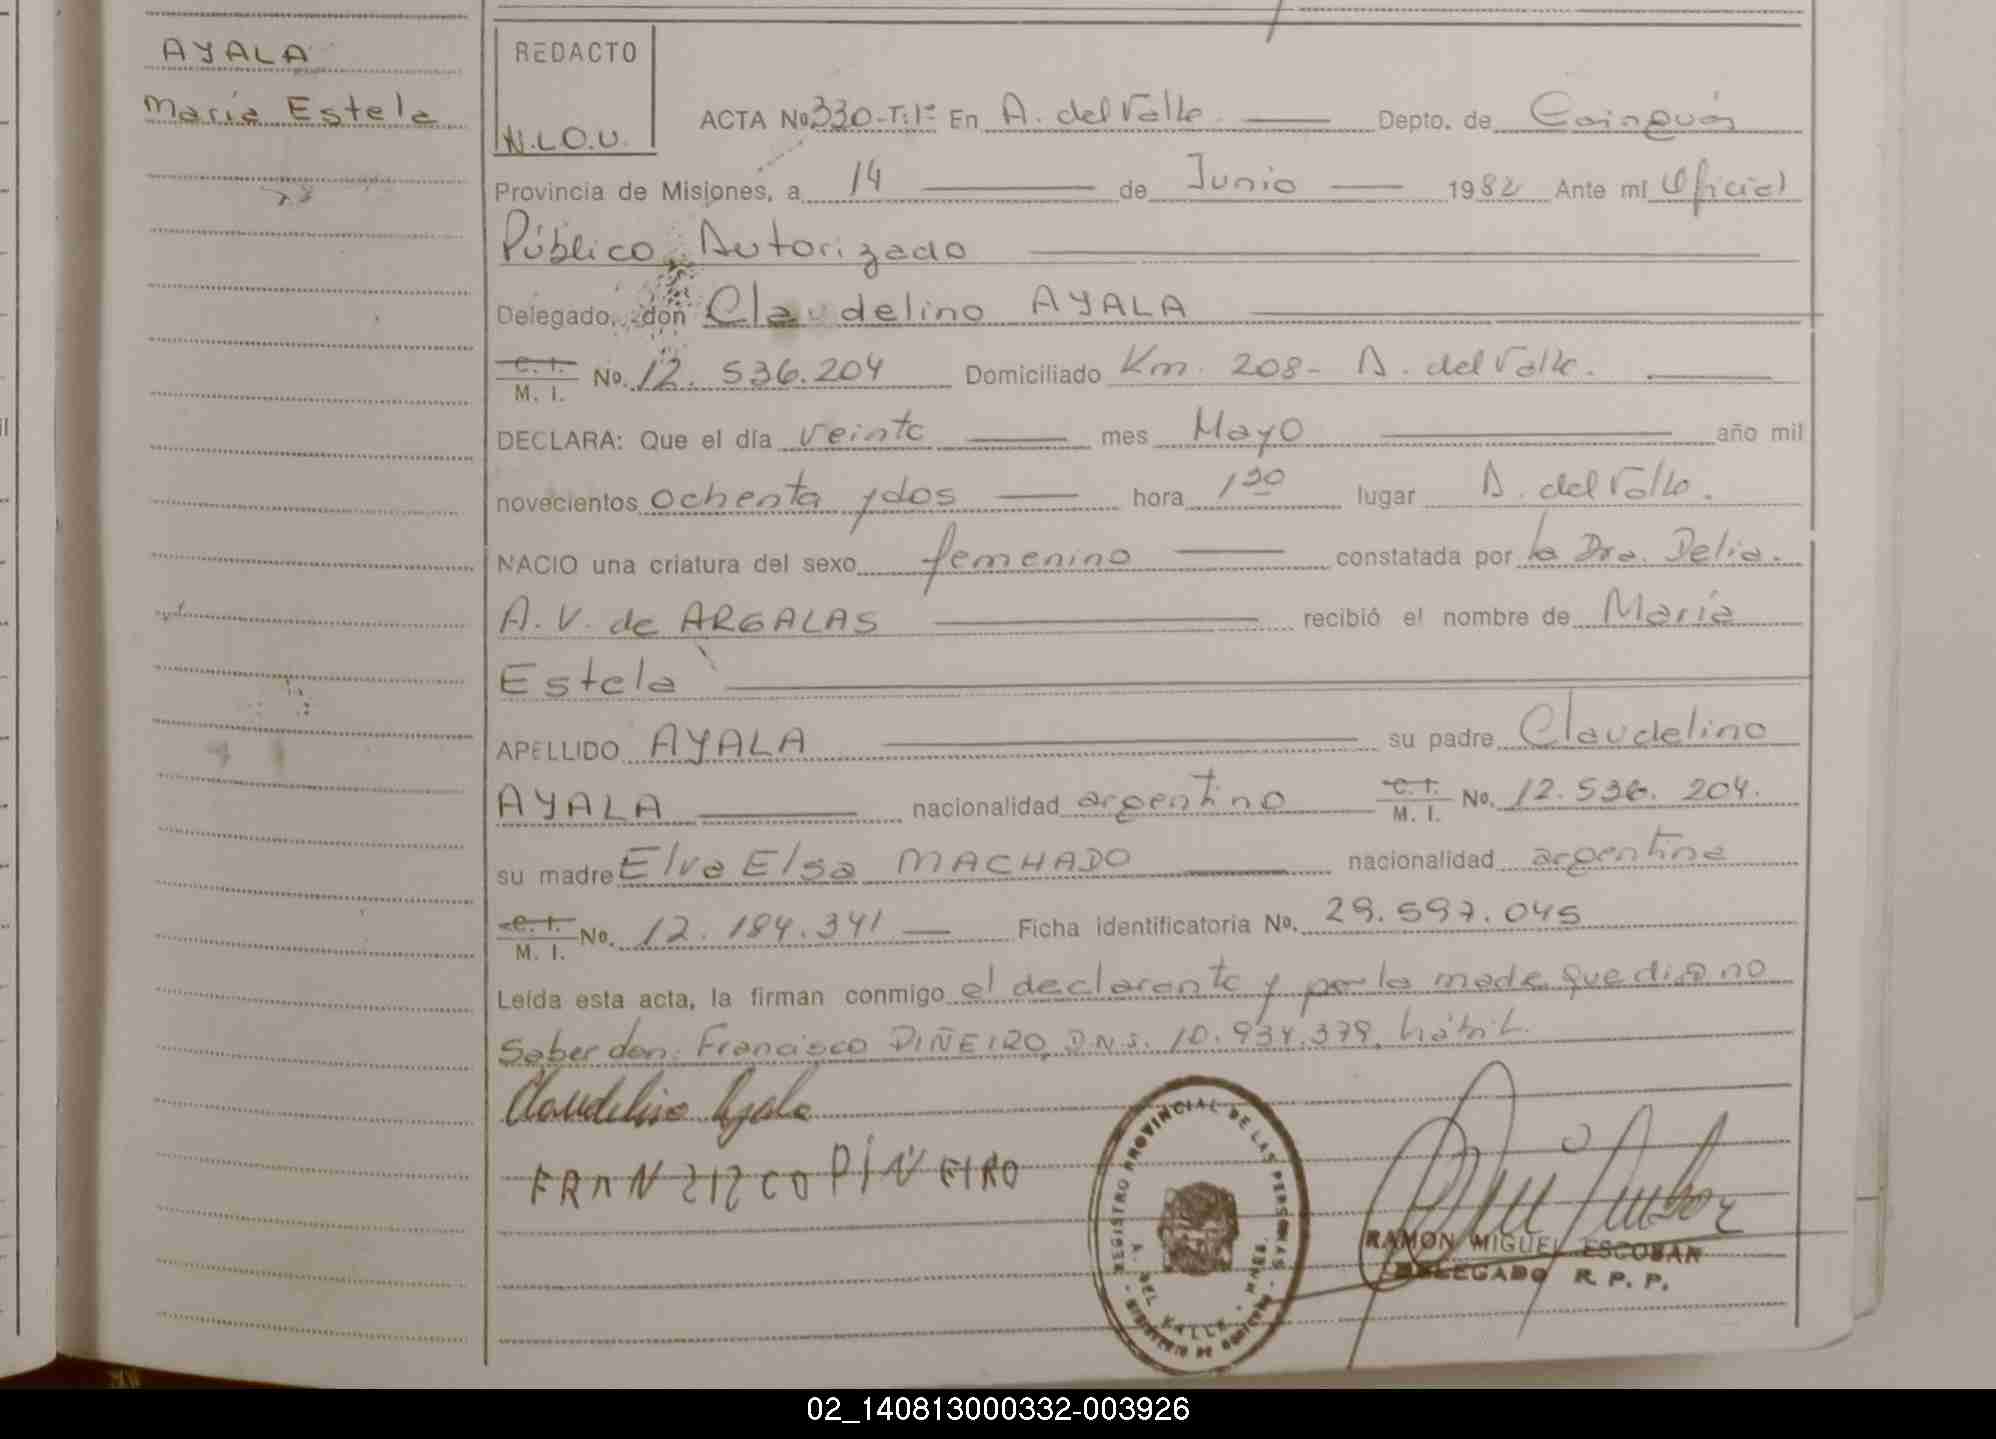 AYALA
María Estela
REDACTO
N.L.O.U.
ACTA No 330-T:1º En A. del Valle Depto. de Cainguás
Provincia de Misiones, a 14 de Junio 1982 Ante mi Oficial
Público Autorizado
Delegado, don Claudelino AYALA
C. I. M. I. No. 12.536.204 Domiciliado Km. 208- A. del Valle.
DECLARA: Que el día veinte mes Mayo año mil
novecientos ochenta y dos hora 1 30 lugar A. del Valle.
NACIO una criatura del sexo femenino constatada por la Dra. Delia.
A. V. de ARGALAS recibió el nombre de María
Estela
APELLIDO AYALA su padre Claudelino
AYALA nacionalidad argentino C. I. M. I. No. 12.536.204.
su madre Elva Elsa MACHADO nacionalidad argentina
C. I. M. I. No. 12.184.341 Ficha identificatoria No. 29.597.045
Leída esta acta, la firman conmigo el declarante y por la madre que dijo no
Saber don: Francisco PIÑEIRO, D.N.I. 10.934.379, hábil.
Claudelino Ayala
FRANCISCO PIÑEIRO
REGISTRO PROVINCIAL DE LAS PERSONAS
A. DEL VALLE - MNES.
MINISTERIO DE GOBIERNO
RAMON MIGUEL ESCOBAR
DELEGADO R. P. P.
02_140813000332-003926